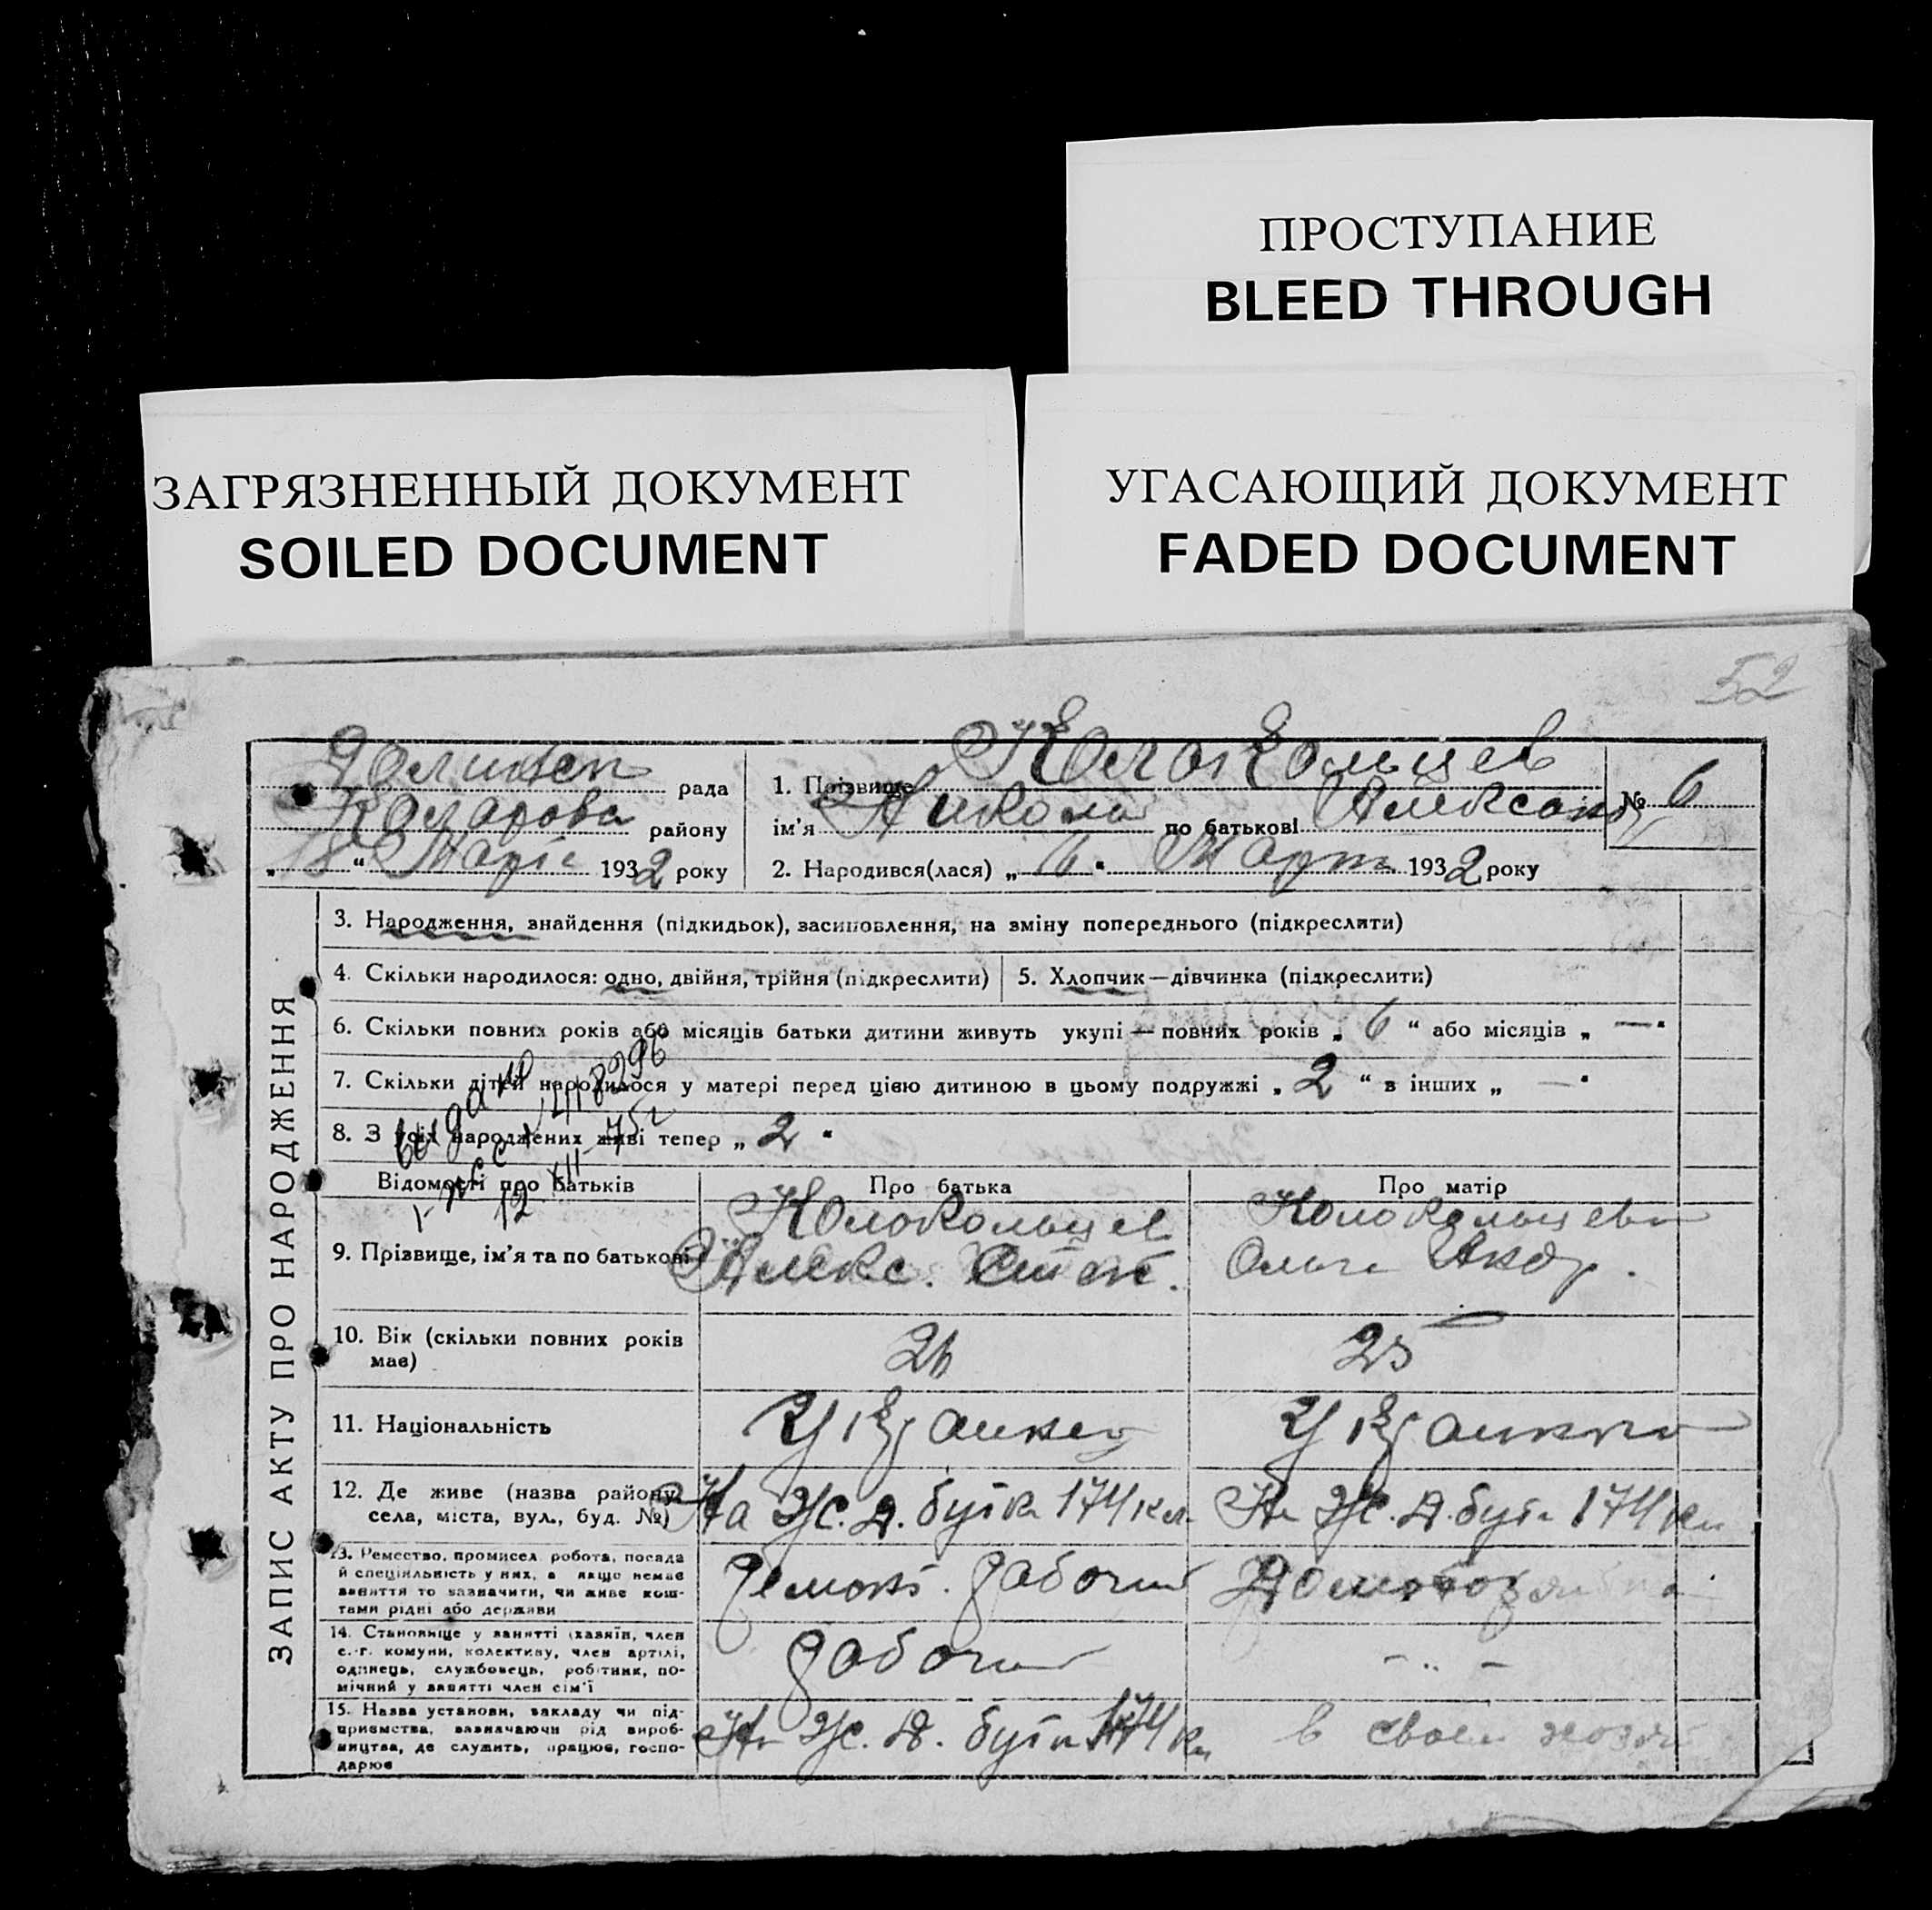 ПРОСТУПАНИЕ
BLEED THROUGH
ЗАГРЯЗНЕННЫЙ ДОКУМЕНТ
SOILED DOCUMENT
УГАСАЮЩИЙ ДОКУМЕНТ
FADED DOCUMENT
52
рада
Коларова району
„18“ Марта 1932 року
1. Прізвище Колокольцев
ім'я Николай по батькові Александ
№ 6
2. Народився(лася) „6“ Марта 1932 року
ЗАПИС АКТУ ПРО НАРОДЖЕННЯ
3. Народження, знайдення (підкидьок), засиновлення, на зміну попереднього (підкреслити)
4. Скільки народилося: одно, двійня, трійня (підкреслити)
5. Хлопчик—дівчинка (підкреслити)
6. Скільки повних років або місяців батьки дитини живуть укупі — повних років „6“ або місяців „—“
7. Скільки дітей народилося у матері перед цією дитиною в цьому подружжі „2“ в інших „—“
8. З усіх народжених живі тепер „2“
выдано
12-XII-75г
Відомості про батьків
Про батька
Про матір
9. Прізвище, ім'я та по батькові
Колокольцев
Алекс. Степ.
Колокольцева
Ольга Андр.
10. Вік (скільки повних років має)
26
25
11. Національність
Украинец
Украинка
12. Де живе (назва району, села, міста, вул., буд. №)
На Ж.Д. будка 174 км
На Ж.Д. будка 174 км
13. Ремество, промисел, робота, посада й спеціяльність у них, а якщо немає заняття то зазначити, чи живе коштами рідні або держави
Ремонт. рабочий
Домохозяйка
14. Становище у занятті (хазяїн, член с.-г. комуни, колективу, член артілі, одинець, службовець, робітник, помічний у занятті член сім'ї
рабочий
- „ -
15. Назва установи, закладу чи підприємства, зазначаючи рід виробництва, де служить, працює, господарює
На Ж.Д. будка 174 км
в своем хозяй